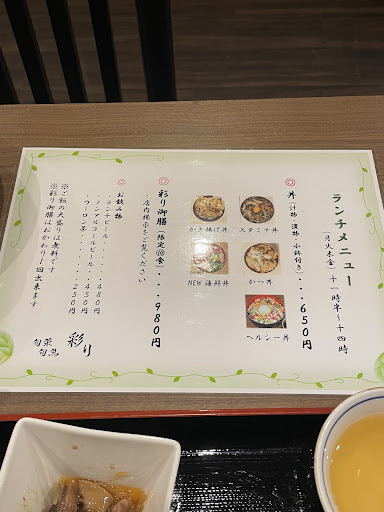 ランチメニュー
(月火木金)十一時半〜十四時
◎丼(汁物・漬物・小鉢付き)・・・650円
スタミナ丼
かき揚げ丼
かつ丼
NEW海鮮丼
ヘルシー丼
◎彩り御膳(限定⑩食)・・・980円
・店内掲示をご覧ください
◎お飲み物
・ランチビール・・・480円
・ノンアルコールビール・・・450円
・ウーロン茶・・・250円
※ご飯の大盛りは無料です
※彩り御膳はおかわり1回出来ます
旬菜
旬魚
彩り